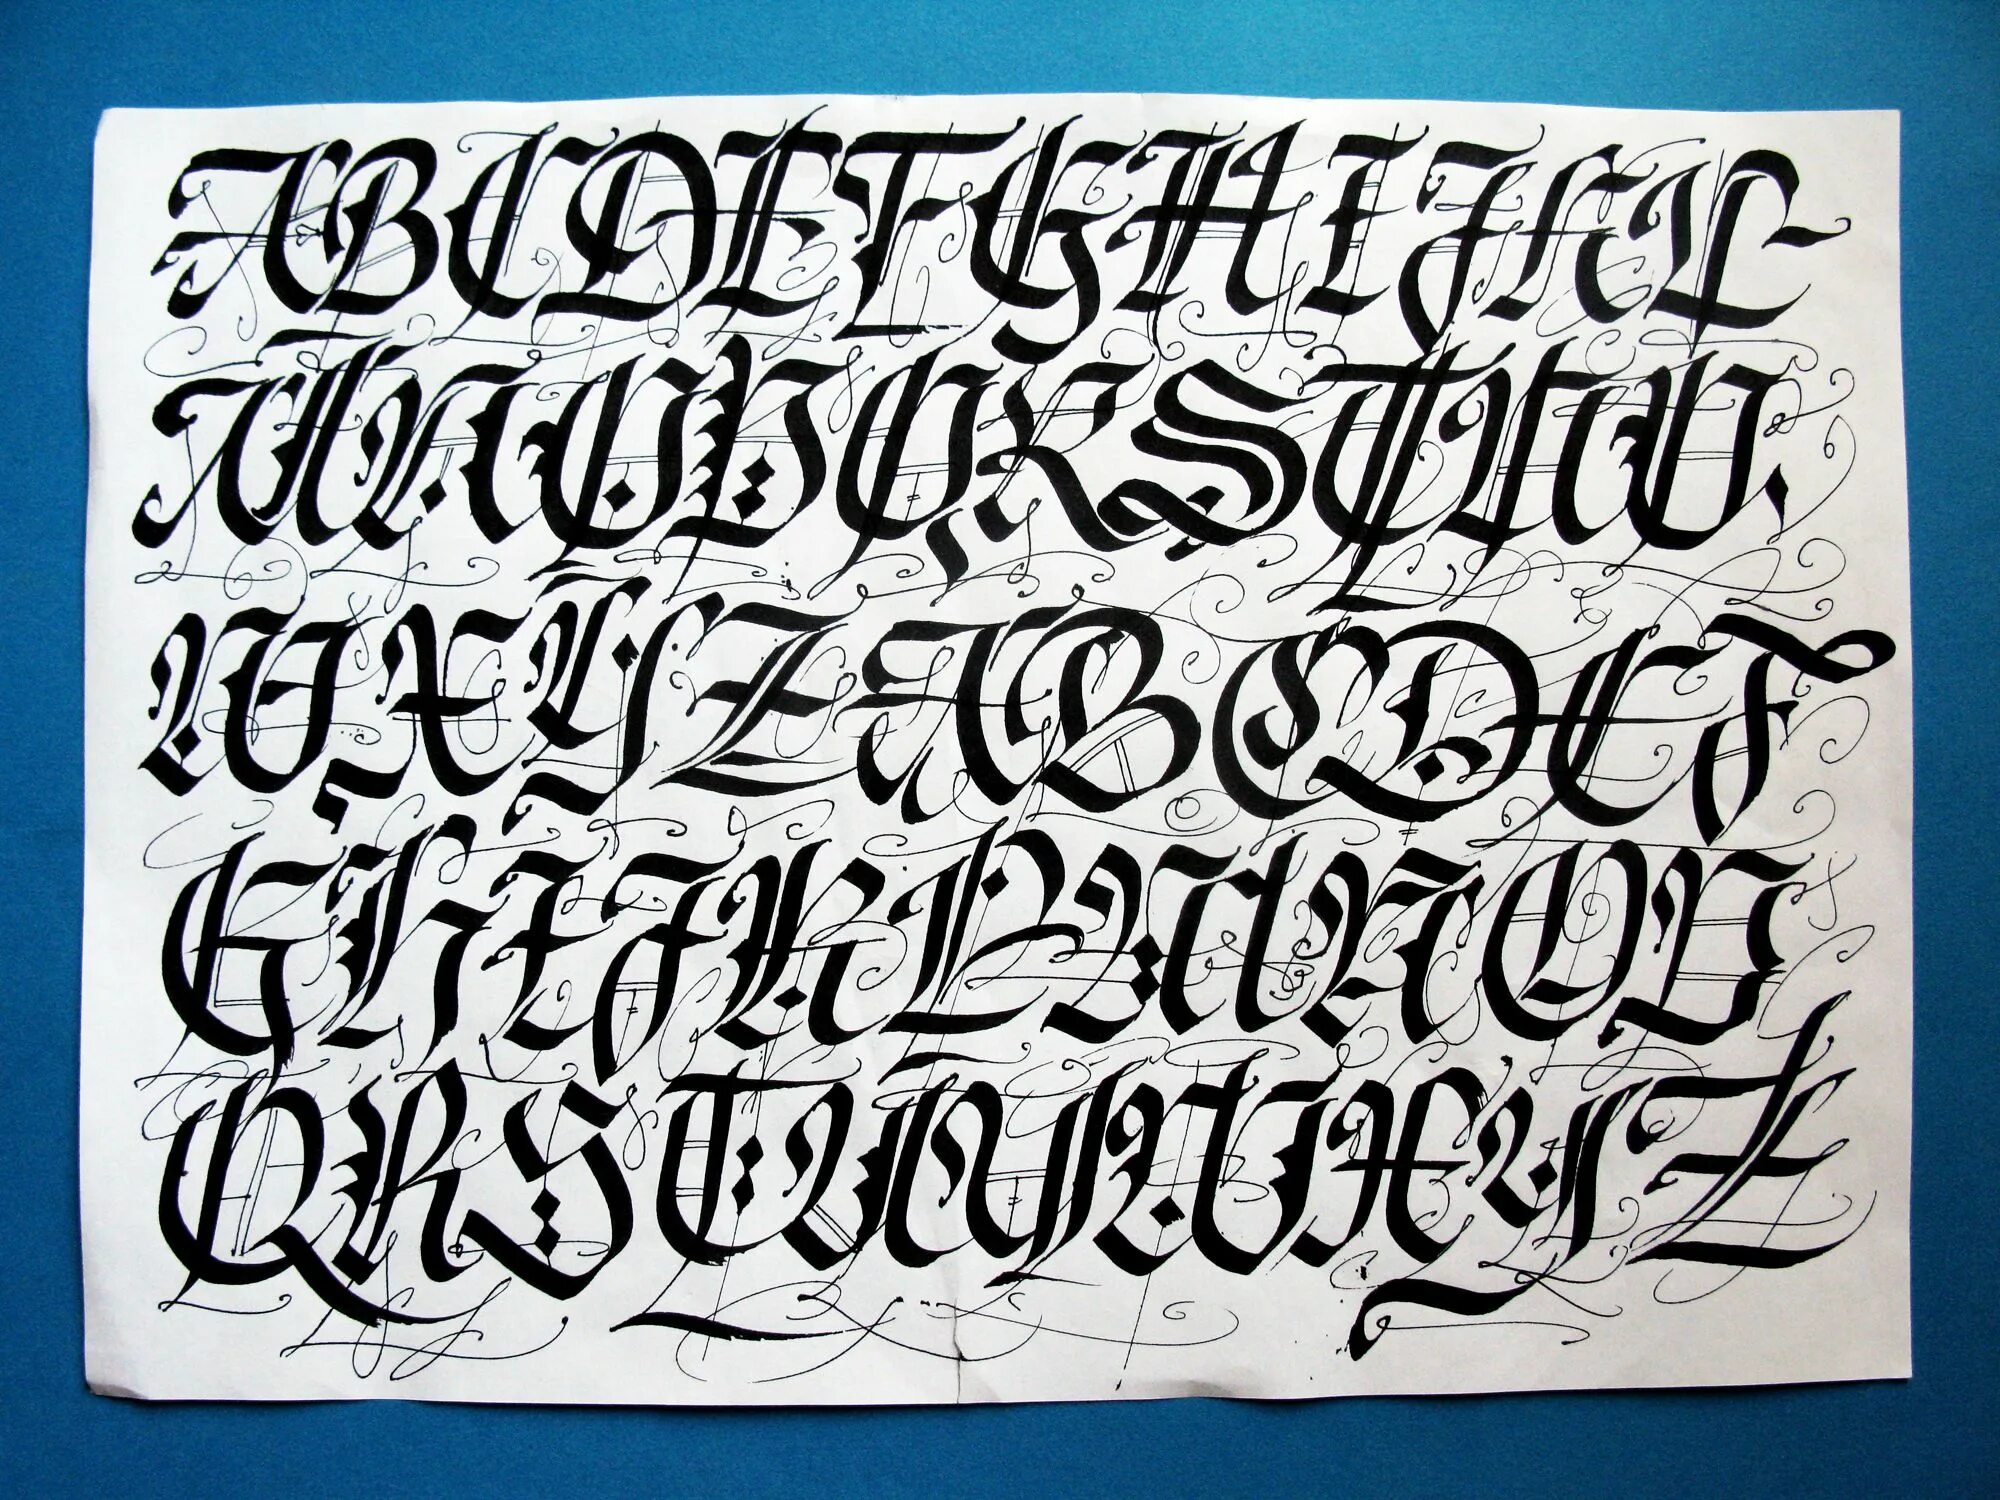 ABCDEFGHIJKL
MNOPQRSTUV
WXYZABCDEF
GHIJKLMNOP
QRSTUVWXYZ